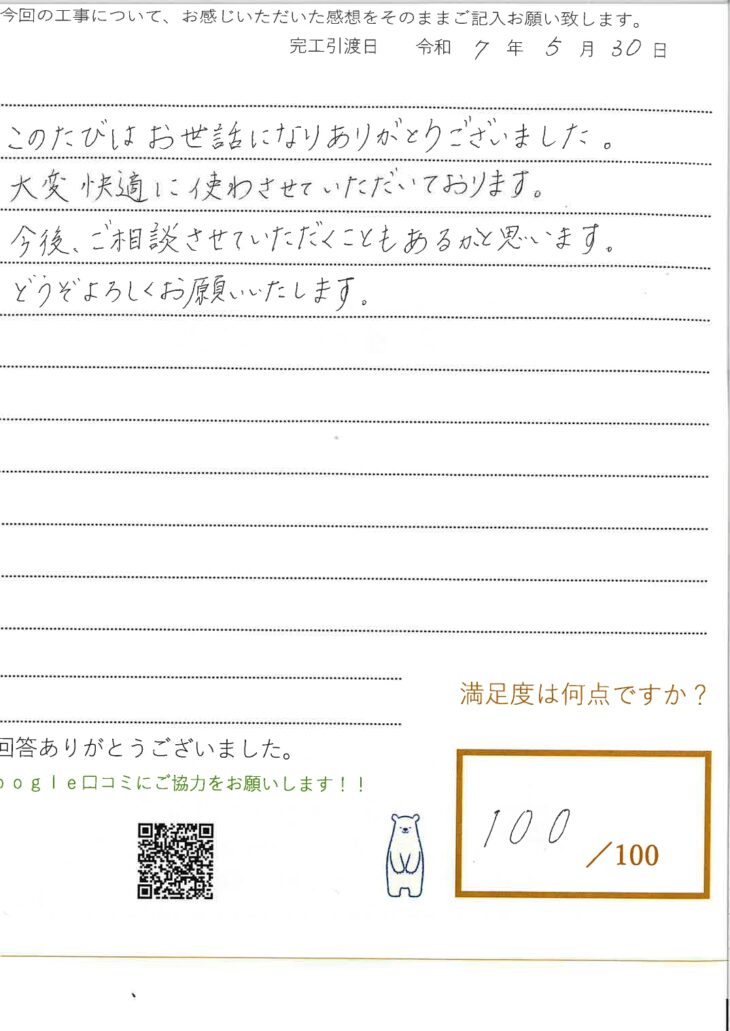 今回の工事について、お感じいただいた感想をそのままご記入お願い致します。
完工引渡日 令和 7 年 5 月 30 日
このたびはお世話になりありがとうございました。
大変快適に使わさせていただいております。
今後、ご相談させていただくこともあるかと思います。
どうぞよろしくお願いいたします。
満足度は何点ですか？
回答ありがとうございました。
oogle口コミにご協力をお願いします！！
100
／100